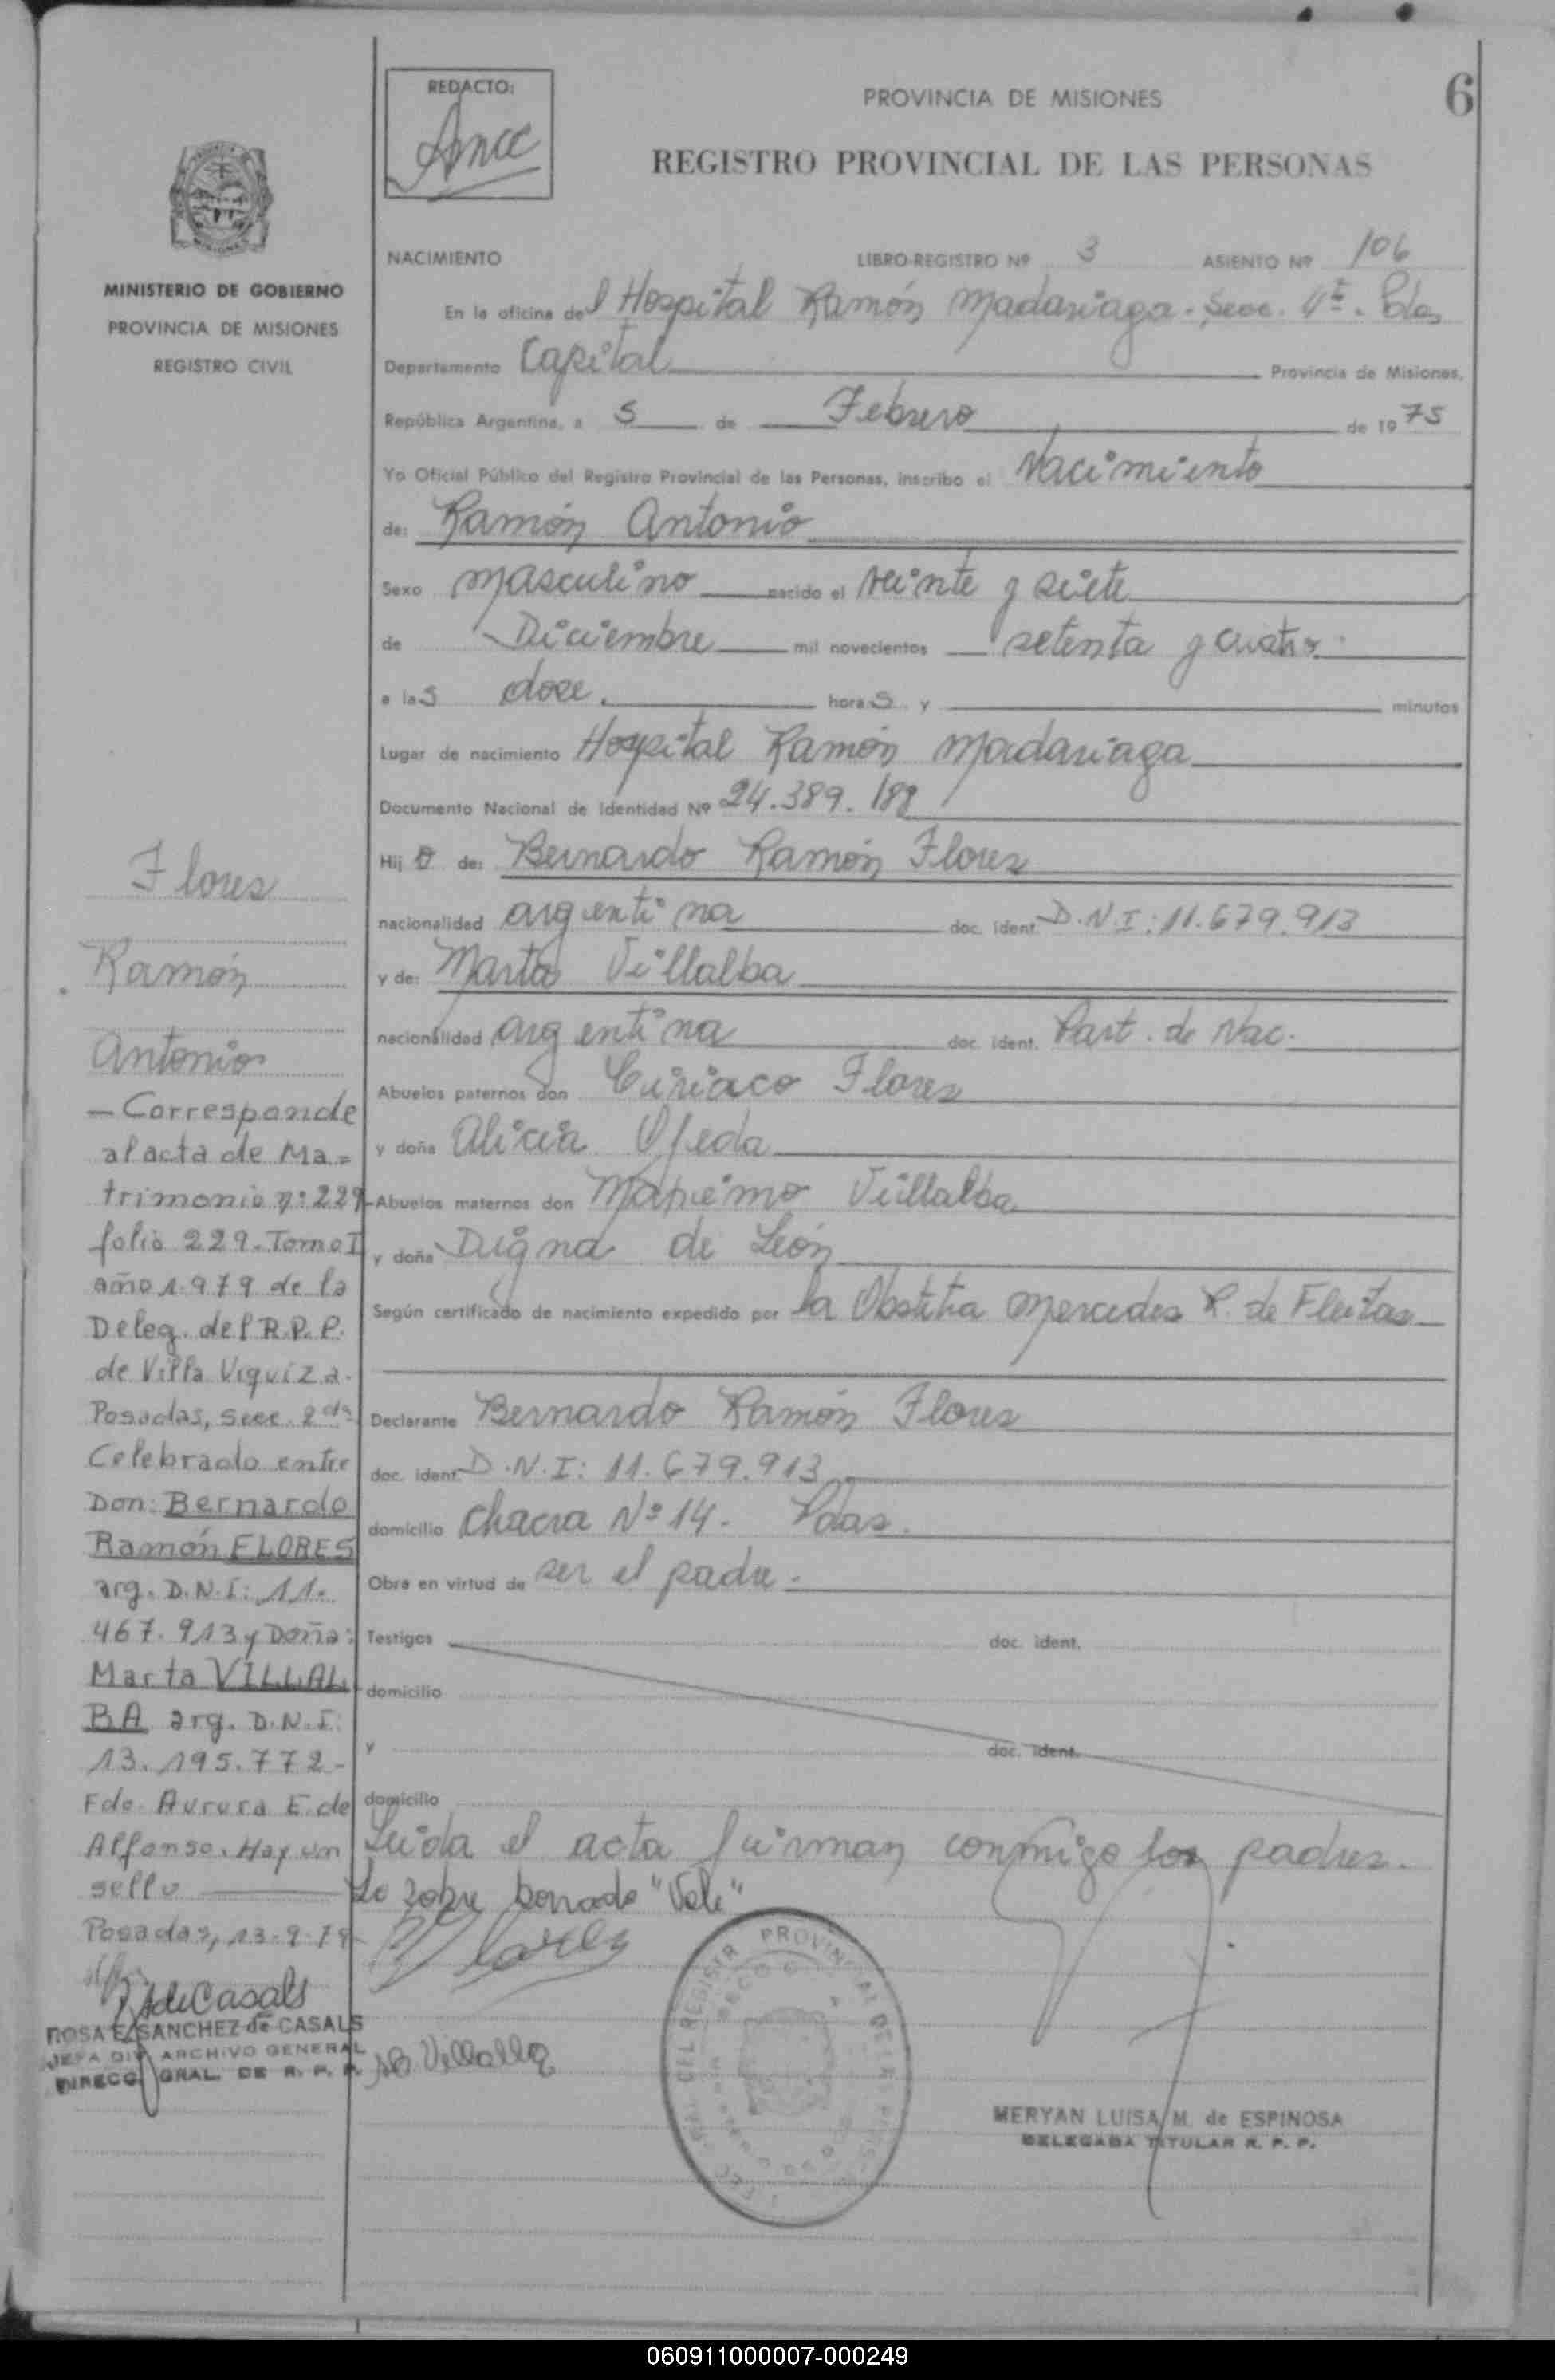 REDACTO:
PROVINCIA DE MISIONES
6
REGISTRO PROVINCIAL DE LAS PERSONAS
MINISTERIO DE GOBIERNO
PROVINCIA DE MISIONES
REGISTRO CIVIL
NACIMIENTO LIBRO-REGISTRO Nº 3 ASIENTO Nº 106
En la oficina del Hospital Ramón Madariaga - Secc. 4ª. Pdas
Departamento Capital Provincia de Misiones,
República Argentina, a 5 de Febrero de 1975
Yo Oficial Público del Registro Provincial de las Personas, inscribo el Nacimiento
de: Ramón Antonio
Sexo masculino nacido el veinte y siete
de Diciembre mil novecientos setenta y cuatro.
a las doce. horas y minutos
Lugar de nacimiento Hospital Ramón Madariaga
Documento Nacional de Identidad Nº 24.389.189
Hijo de: Bernardo Ramón Flores
nacionalidad argentina doc. ident. D.N.I: 11.679.913
y de: Marta Villalba
nacionalidad argentina doc. ident. Part. de Nac.
Abuelos paternos don Ciriaco Flores
y doña Alicia Ojeda
Abuelos maternos don Maximo Villalba
y doña Digna de León
Según certificado de nacimiento expedido por la Obstetra Mercedes R. de Fleitas
Declarante Bernardo Ramón Flores
doc. ident. D.N.I: 11.679.913
domicilio Chacra Nº 14. Pdas.
Obra en virtud de ser el padre.
Testigos doc. ident.
domicilio
y doc. ident.
domicilio
Leida el acta firman conmigo los padres.
Lo sobre borrado "Vale"
Flores
Ramón
Antonio
— Corresponde
al acta de Ma=
trimonio nº: 229-
folio 229. Tomo I
año 1.979 de la
Deleg. del R.P.P.
de Villa Urquiza.
Posadas, Secc. 2da
Celebrado entre
Don: Bernardo
Ramón FLORES
arg. D.N.I: 11.
467.913 y Doña:
Marta VILLAL
BA arg. D.N.I:
13.195.772-
Fdo. Aurora E. de
Alfonso. Hay un
sello
Posadas, 13-9-79
ROSA E. SANCHEZ de CASALS
JEFA DIV. ARCHIVO GENERAL
DIRECC. GRAL. DE R. P. P.
Villalba
MERYAN LUISA M. de ESPINOSA
DELEGADA TITULAR R. P. P.
060911000007-000249